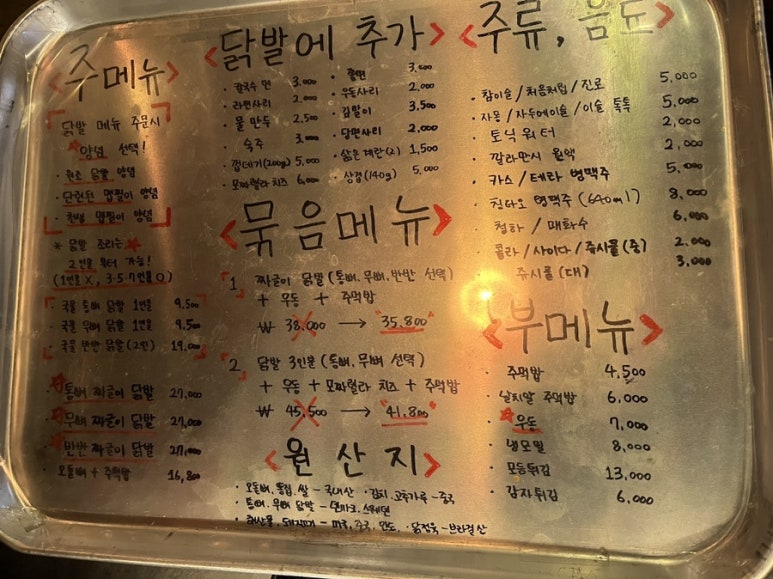 <주메뉴>
닭발 메뉴 주문시
양념 선택!
· 원조 닭발 양념
· 단련된 맵찔이 양념
· 천생 맵찔이 양념
* 닭발 조리는
2인분 부터 가능!
(1인분 X, 3·5·7인분 O)
· 국물 통뼈 닭발 1인분 9,500
· 국물 무뼈 닭발 1인분 9,500
· 국물 반반 닭발 (2인) 19,000
통뼈 짜글이 닭발 27,000
무뼈 짜글이 닭발 27,000
반반 짜글이 닭발 27,000
오돌뼈 + 주먹밥 16,800
<닭발에 추가>
· 칼국수 면 3,000
· 라면사리 2,000
· 물만두 2,500
· 숙주 3,000
· 껍데기(200g) 5,000
· 모짜렐라 치즈 6,000
· 쫄면 3,500
· 우동사리 2,000
· 김말이 3,500
· 당면사리 2,000
· 삶은 계란(2) 1,500
· 삼겹(140g) 5,000
<묶음메뉴>
1 짜글이 닭발 (통뼈, 무뼈, 반반 선택)
+ 우동 + 주먹밥
₩ 38,000 → "35,800"
2 닭발 3인분 (통뼈, 무뼈 선택)
+ 우동 + 모짜렐라 치즈 + 주먹밥
₩ 45,500 → "41,800"
<원산지>
· 오돌뼈, 쌀 - 국내산 · 김치, 고추가루 - 중국
· 통뼈, 무뼈 닭발 - 덴마크, 스웨덴
· 닭정육 - 브라질산
<주류, 음료>
· 참이슬 / 처음처럼 / 진로 5,000
· 자몽 / 자두에이슬 / 이슬 톡톡 5,000
· 토닉 워터 2,000
· 깔라만시 원액 2,000
· 카스 / 테라 병맥주 5,000
· 칭다오 병맥주 (640ml) 8,000
· 청하 / 매화수 6,000
· 콜라 / 사이다 / 쥬시쿨 (중) 2,000
쥬시쿨 (대) 3,000
<부메뉴>
· 주먹밥 4,500
· 날치알 주먹밥 6,000
· 우동 7,000
· 냉모밀 8,000
· 모둠튀김 13,000
· 감자튀김 6,000